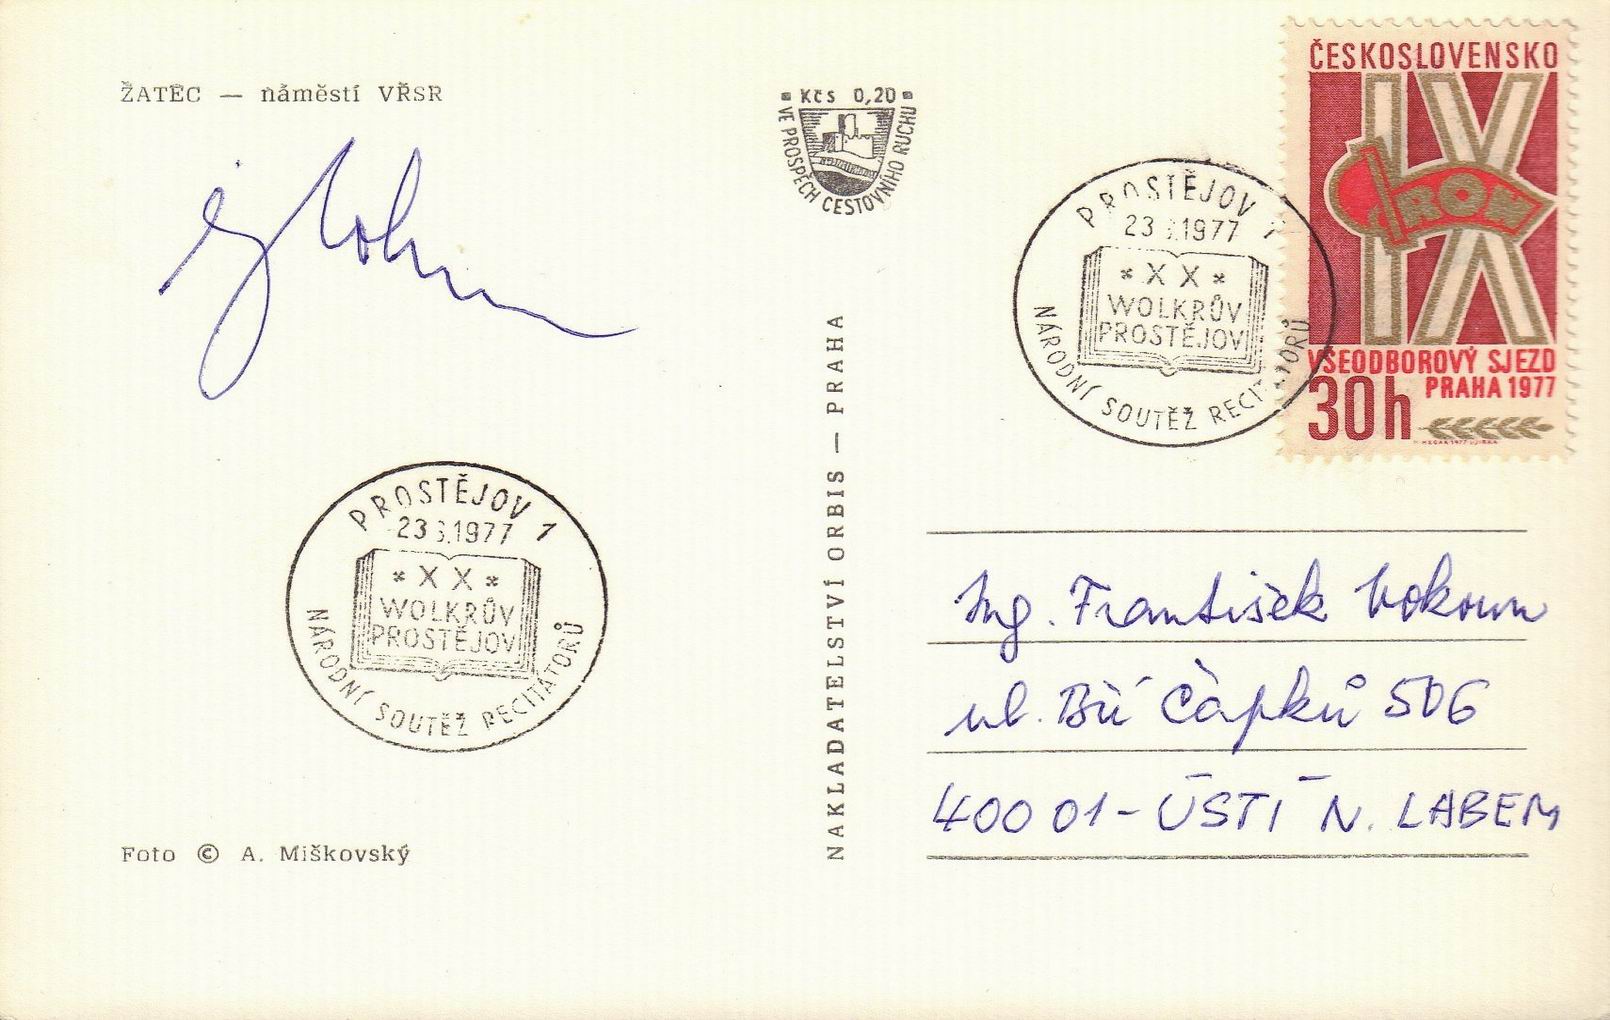 ŽATEC — náměstí VŘSR
Kčs 0,20
VE PROSPĚCH CESTOVNÍHO RUCHU
ČESKOSLOVENSKO
IX
ROH
VŠEODBOROVÝ SJEZD
PRAHA 1977
30h
PROSTĚJOV 1
23 .1977
* X X *
WOLKRŮV
PROSTĚJOV
NÁRODNÍ SOUTĚŽ RECITÁTORŮ
PROSTĚJOV 1
23 .1977
* X X *
WOLKRŮV
PROSTĚJOV
NÁRODNÍ SOUTĚŽ RECITÁTORŮ
NAKLADATELSTVÍ ORBIS — PRAHA
Ing. František Vokoun
ul. Bří Čapků 506
400 01 - ÚSTÍ N. LABEM
Foto © A. Miškovský